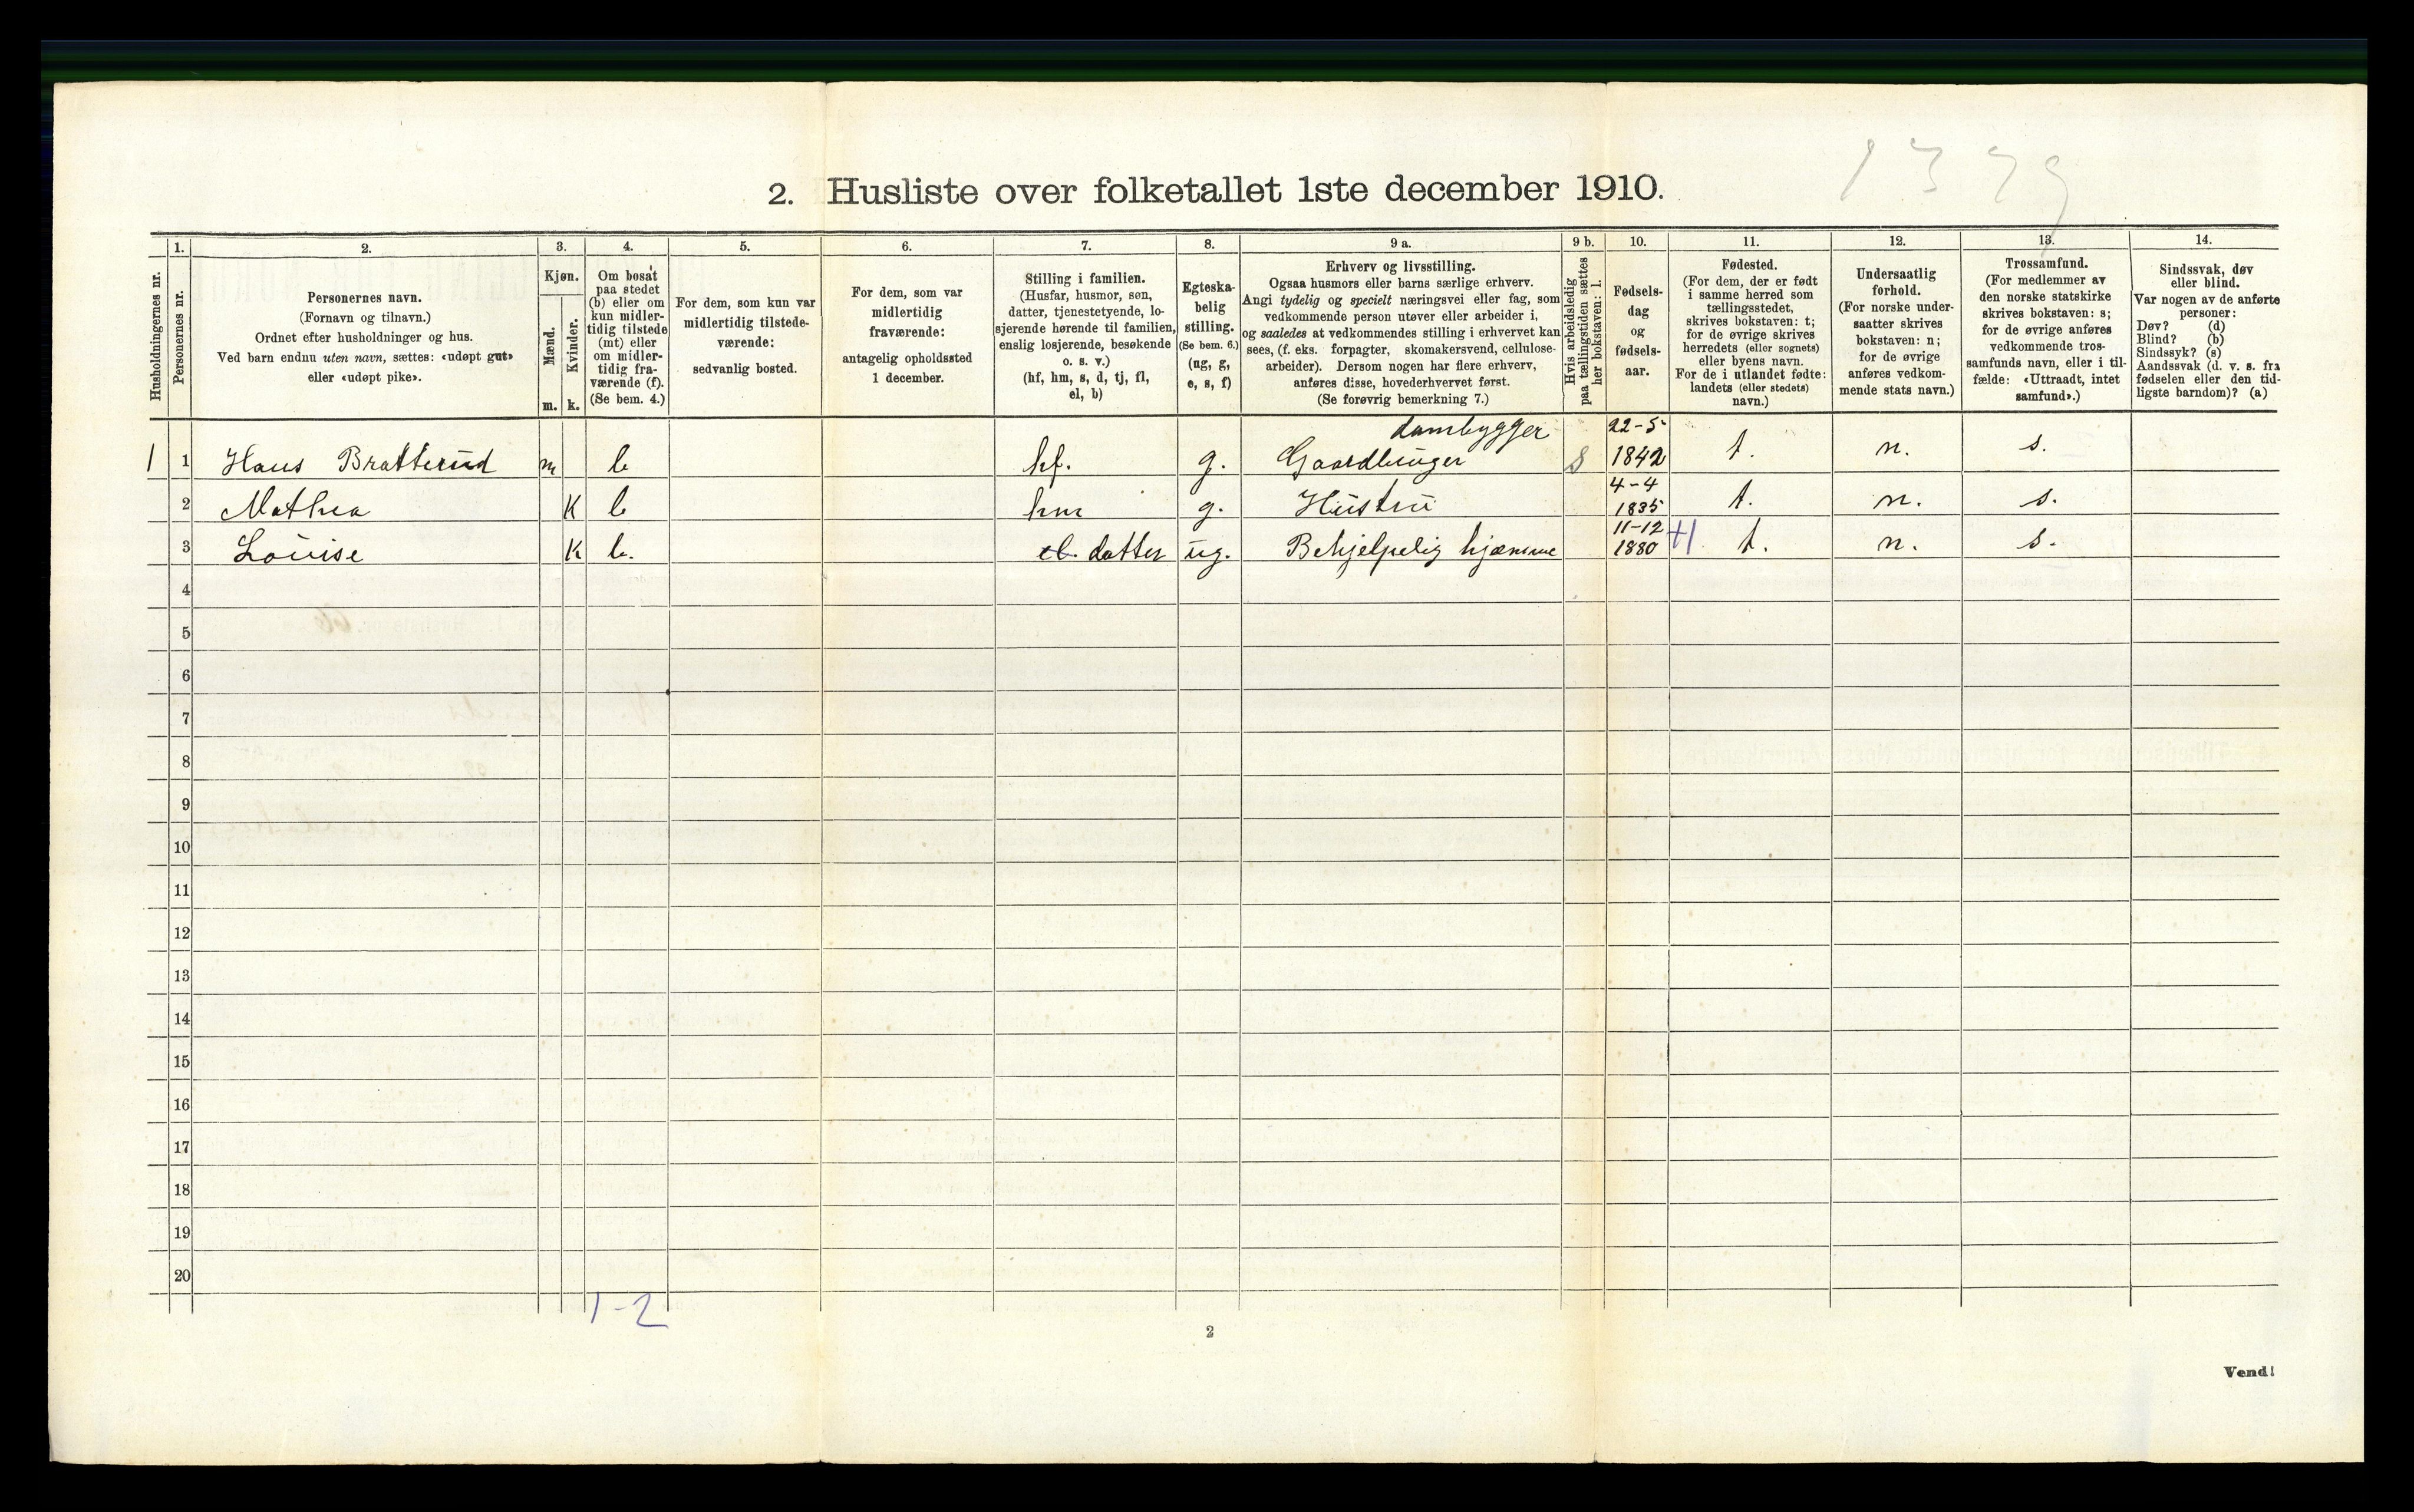 1379
2. Husliste over folketallet 1ste december 1910.
Husholdningernes nr.
1.
Personernes nr.
2.
Personernes navn.
(Fornavn og tilnavn.)
Ordnet efter husholdninger og hus.
Ved barn endnu uten navn, sættes: «udøpt gut»
eller «udøpt pike».
3.
Kjøn.
Mænd.
Kvinder.
m. k.
4.
Om bosat
paa stedet
(b) eller om
kun midler-
tidig tilstede
(mt) eller
om midler-
tidig fra-
værende (f).
(Se bem. 4.)
5.
For dem, som kun var
midlertidig tilstede-
værende:
sedvanlig bosted.
6.
For dem, som var
midlertidig
fraværende:
antagelig opholdssted
1 december.
7.
Stilling i familien.
(Husfar, husmor, søn,
datter, tjenestetyende, lo-
sjerende hørende til familien,
enslig losjerende, besøkende
o. s. v.)
(hf, hm, s, d, tj, fl,
el, b)
8.
Egteska-
belig
stilling.
(Se bem. 6.)
(ug, g,
e, s, f)
9 a.
Erhverv og livsstilling.
Ogsaa husmors eller barns særlige erhverv.
Angi tydelig og specielt næringsvei eller fag, som
vedkommende person utøver eller arbeider i,
og saaledes at vedkommendes stilling i erhvervet kan
sees, (f. eks. forpagter, skomakersvend, cellulose-
arbeider). Dersom nogen har flere erhverv,
anføres disse, hovederhvervet først.
(Se forøvrig bemerkning 7.)
9 b.
Hvis arbeidsledig
paa tællingstiden sættes
her bokstaven: l.
10.
Fødsels-
dag
og
fødsels-
aar.
11.
Fødested.
(For dem, der er født
i samme herred som
tællingsstedet,
skrives bokstaven: t;
for de øvrige skrives
herredets (eller sognets)
eller byens navn.
For de i utlandet fødte:
landets (eller stedets)
navn.)
12.
Undersaatlig
forhold.
(For norske under-
saatter skrives
bokstaven: n;
for de øvrige
anføres vedkom-
mende stats navn.)
13.
Trossamfund.
(For medlemmer av
den norske statskirke
skrives bokstaven: s;
for de øvrige anføres
vedkommende tros-
samfunds navn, eller i til-
fælde: «Uttraadt, intet
samfund».)
14.
Sindssvak, døv
eller blind.
Var nogen av de anførte
personer:
Døv? (d)
Blind? (b)
Sindssyk? (s)
Aandssvak (d. v. s. fra
fødselen eller den tid-
ligste barndom)? (a)
dambygger 22-5
1 1 Hans Bratterud m b hf. g. Gaardbruger S 1842 t. n. s.
4-4
2 Mathea K b hm g. Hustru 1835 t. n. s.
11-12
3 Louise K b. datter ug. Behjelpelig hjemme 1880 t. n. s.
4
5
6
7
8
9
10
11
12
13
14
15
16
17
18
19
20
1-2
2
Vend!